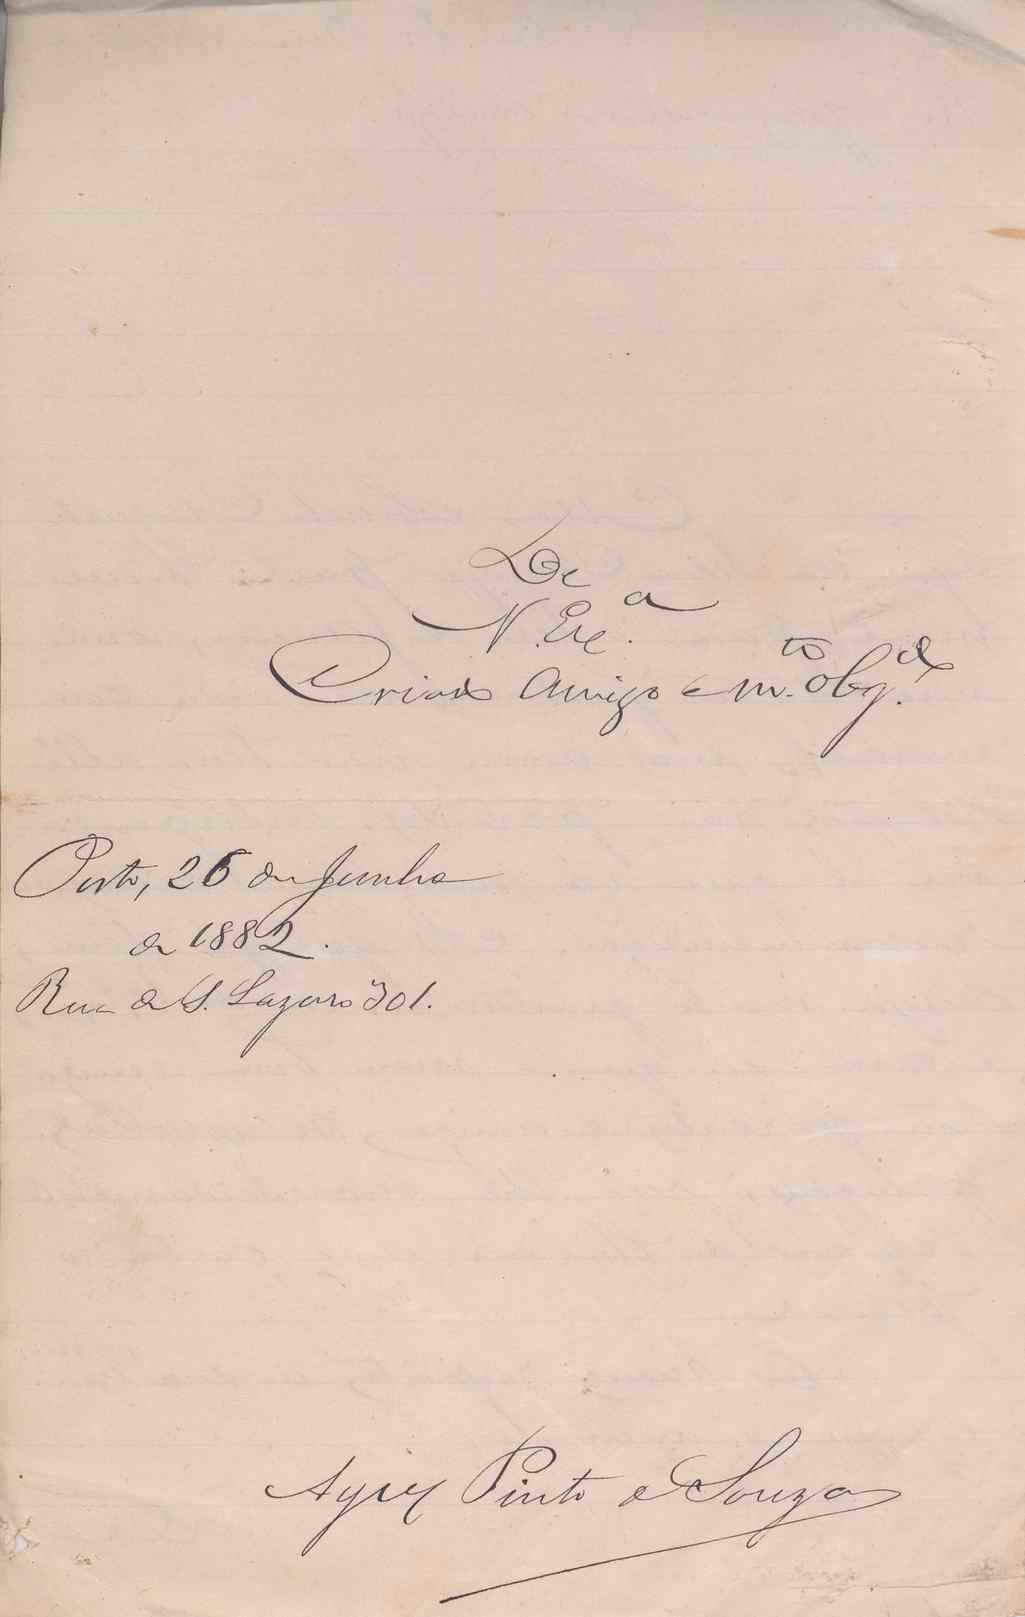 De
V. Exc.ª
Criado Amigo e m.to obg.do
Porto, 26 de Junho
de 1882.
Rua de S. Lazaro 301.
Ayres Pinto de Souza